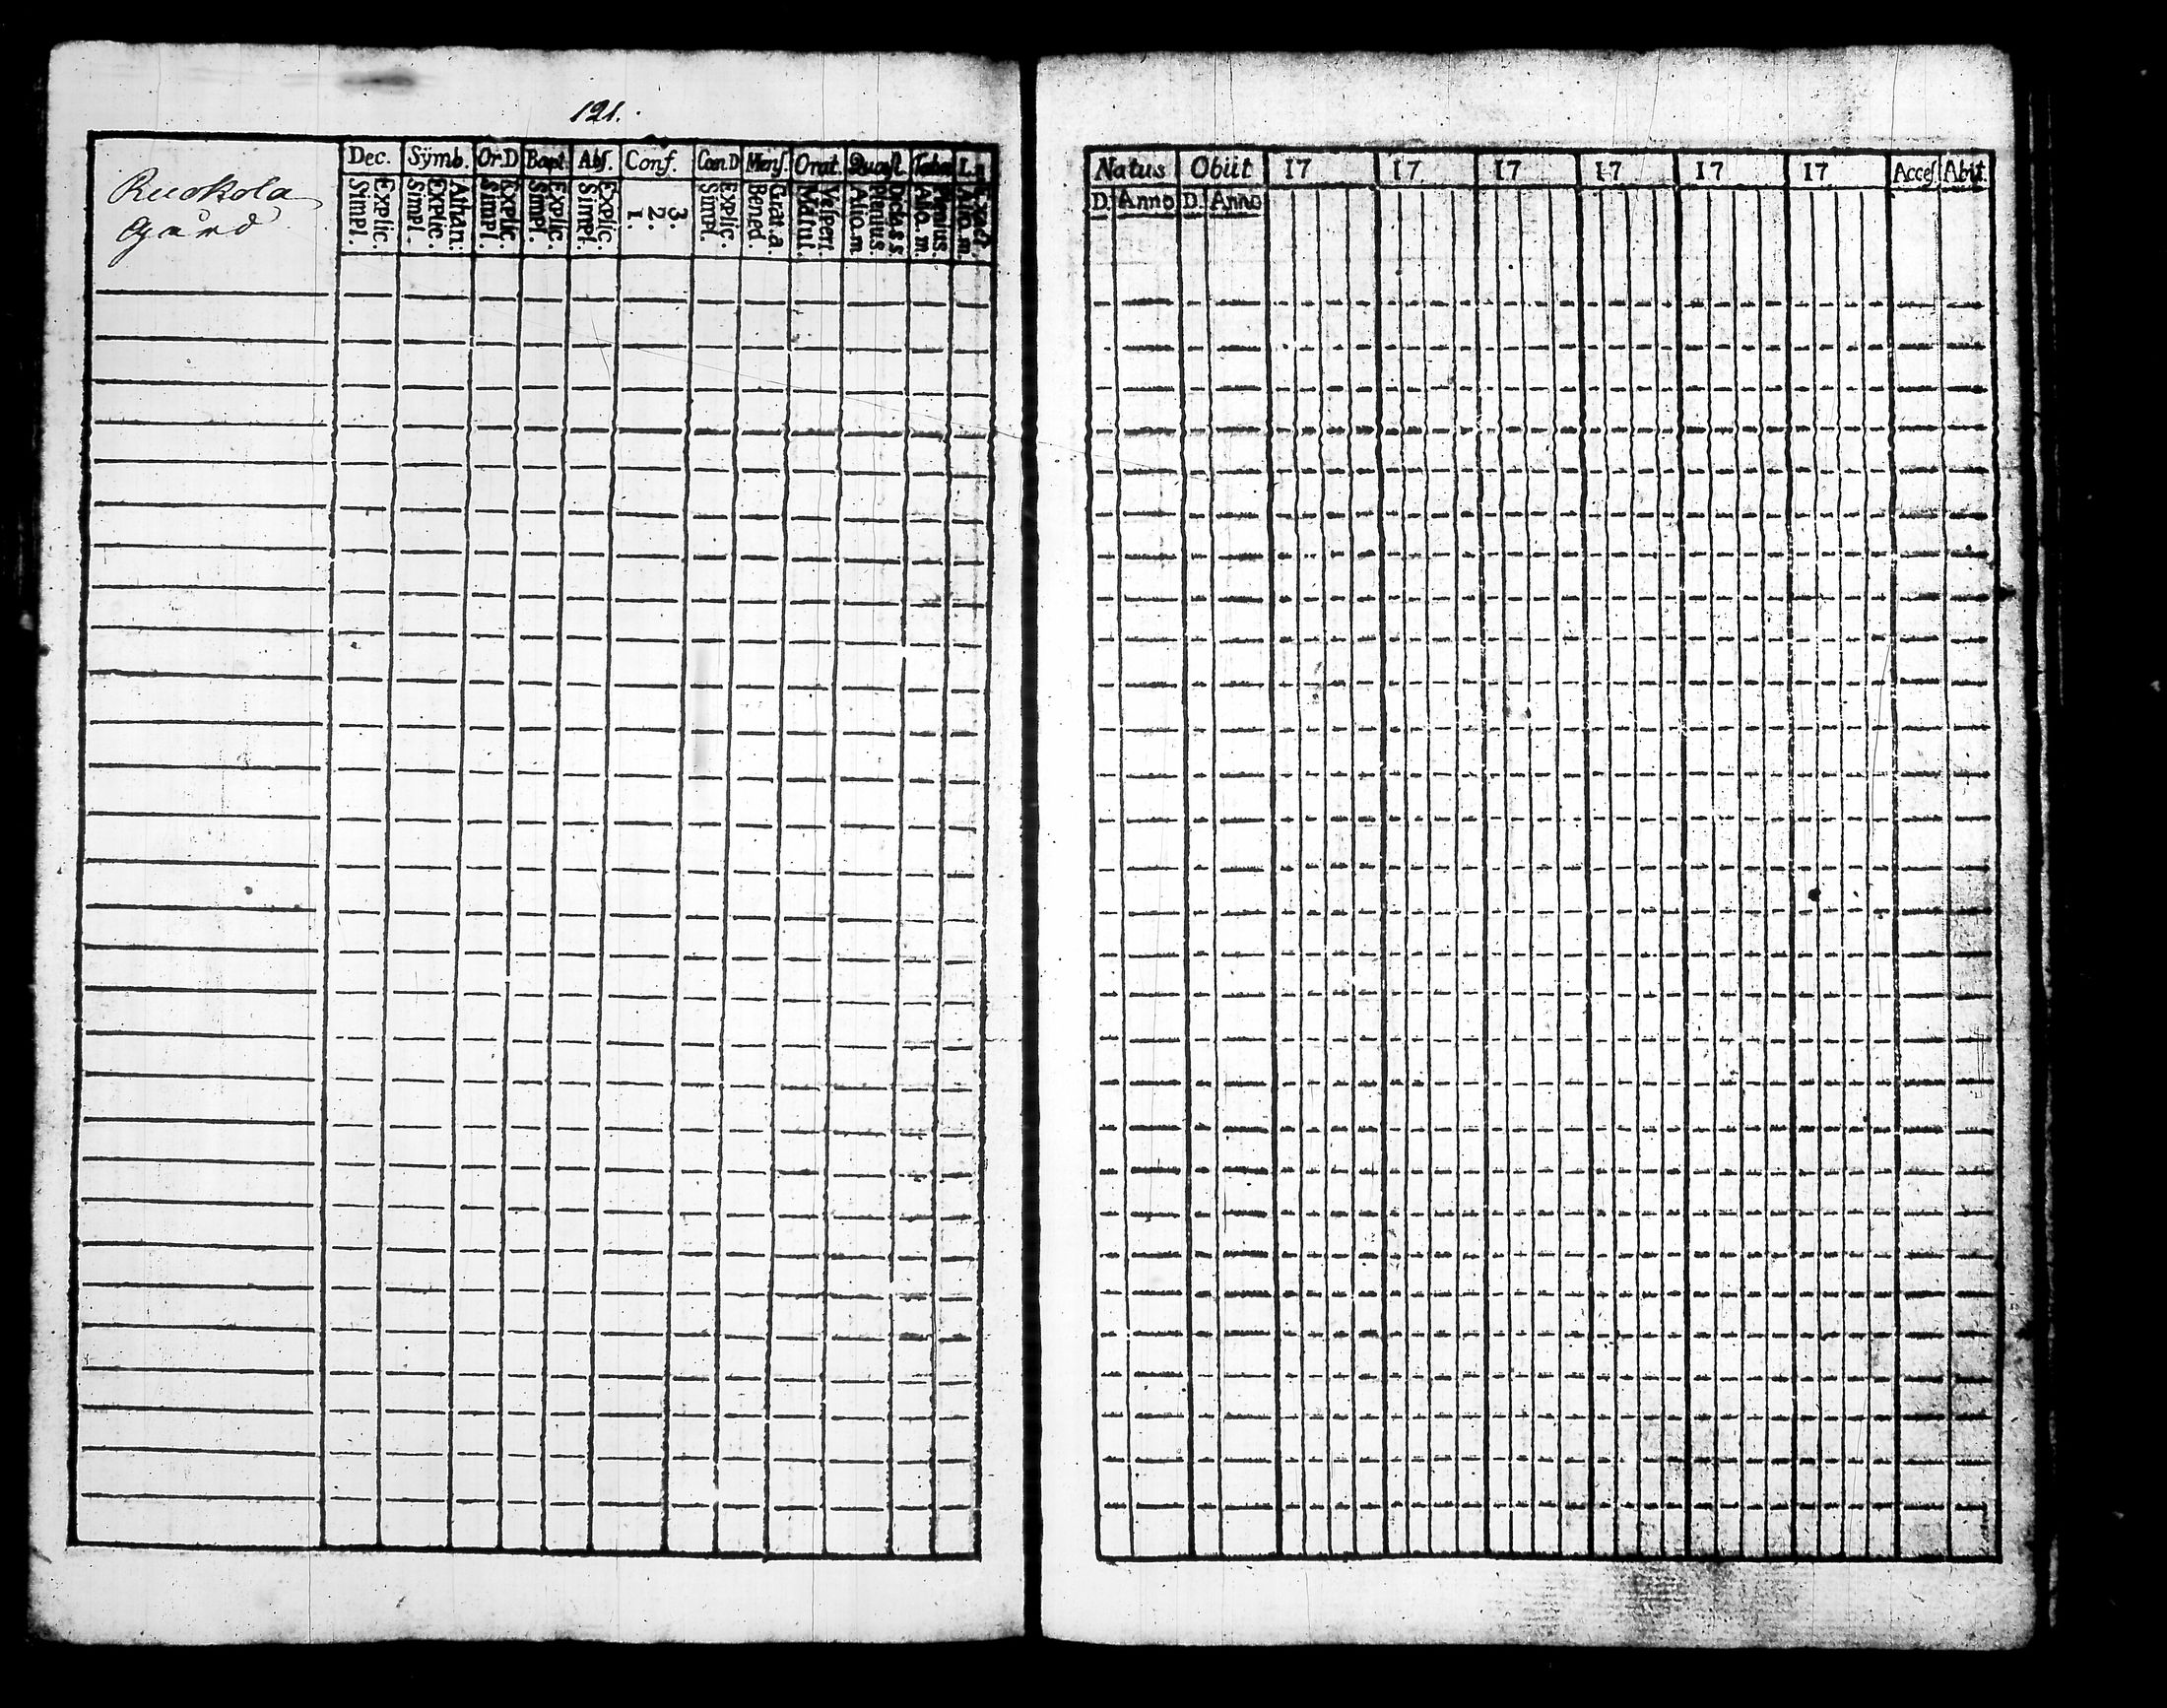 121.
Ruokola
Gård
Dec. Sÿmb. Or.D Bapt. Abs. Conf. Cœn.D Mens. Orat. Quæst. Tabu L.
Simpl. Explic. Simpl. Explic. Athan: Simpl. Explic. Simpl. Explic. Simpl. Explic. 1. 2. 3. Simpl. Explic. Bened. Grat.a. Matut. Vespert. Alio.m Plenius. Dicta s s. Alio.m. Plenius. Alio.m. Exact.
Natus Obiit 17 17 17 17 17 17 Acces. Abiit.
D. Anno D. Anno